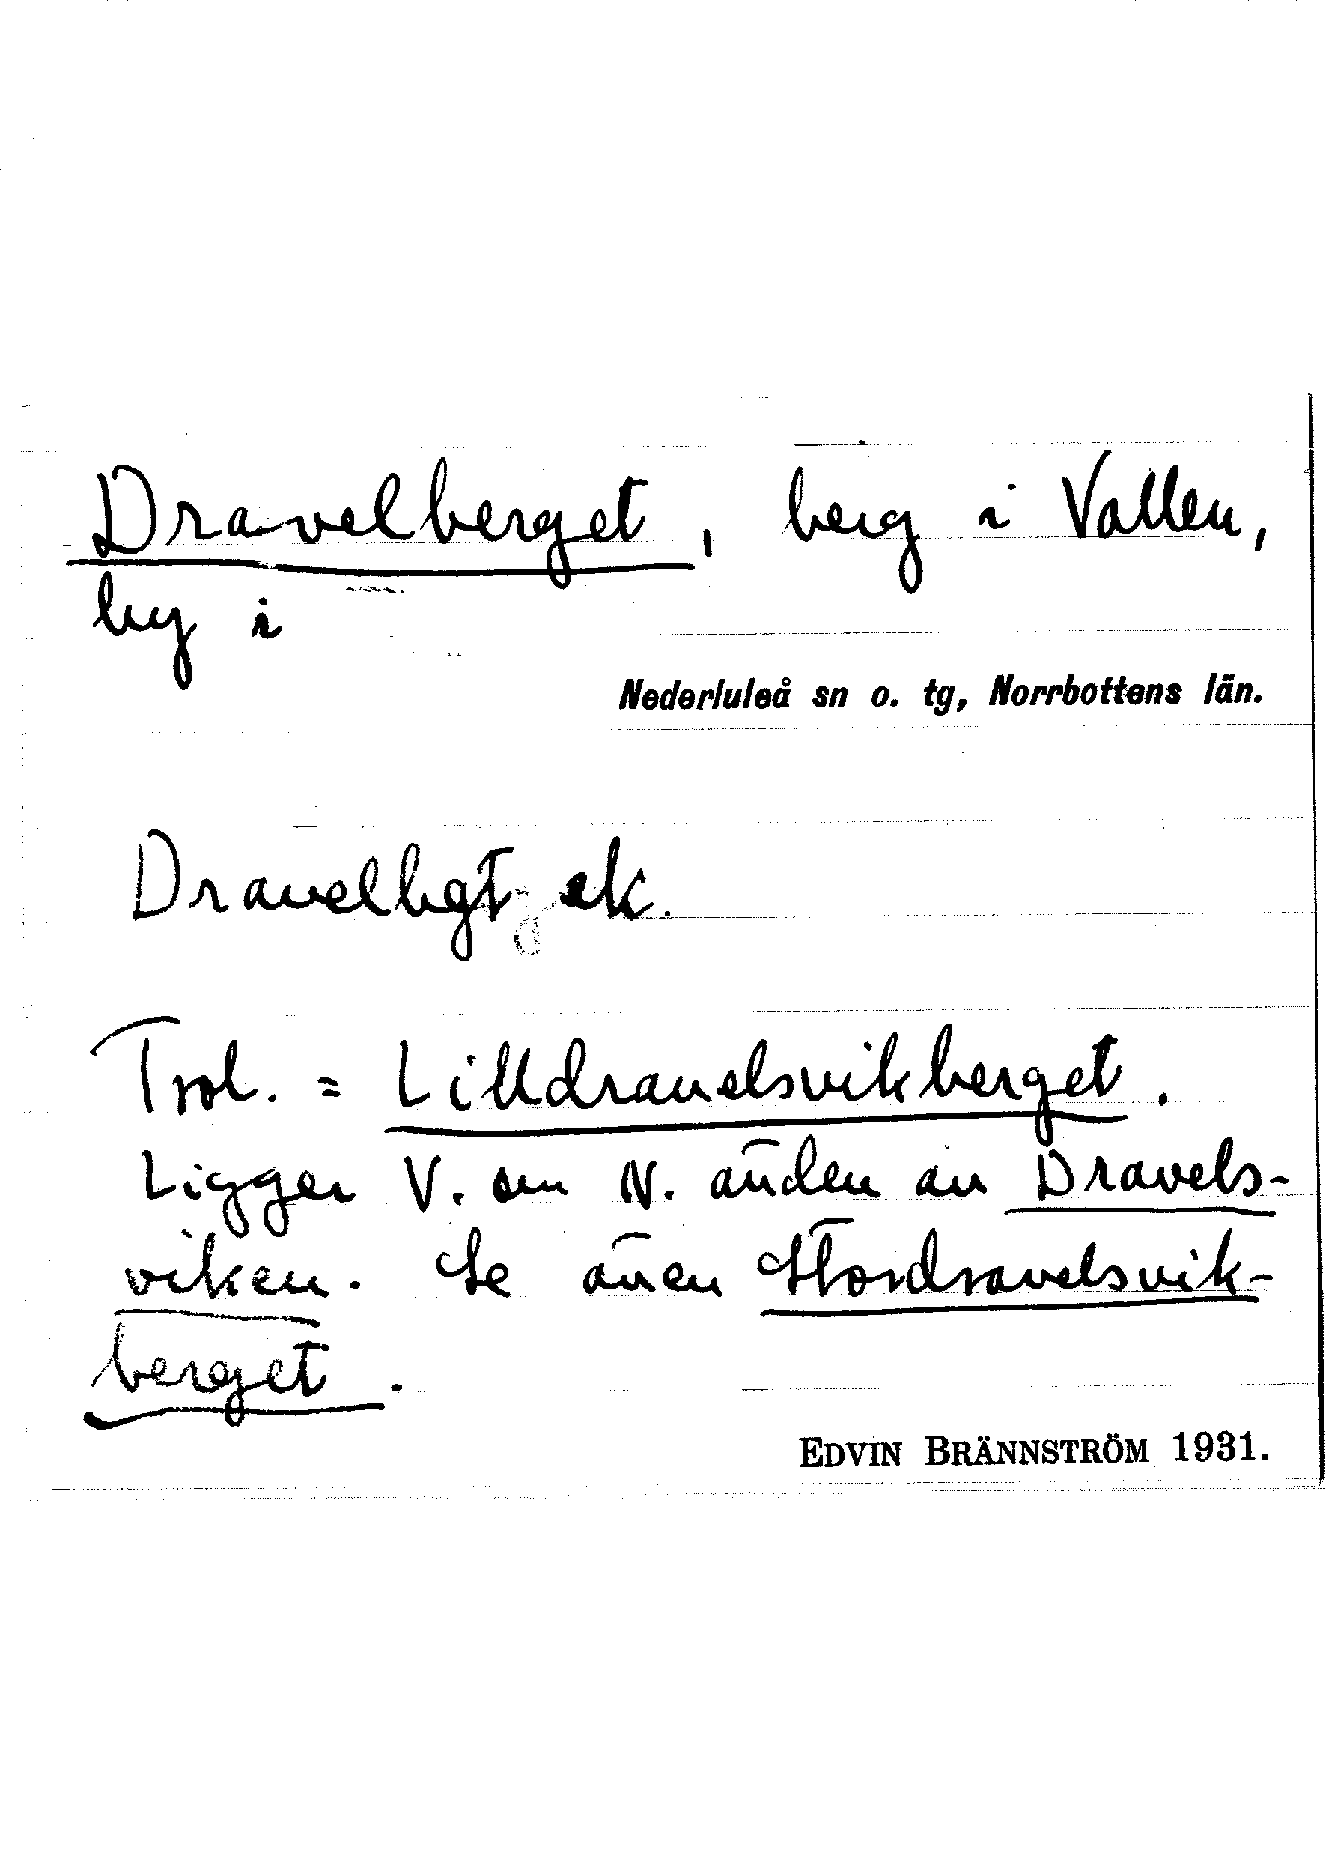 Dravelberget, berg i Vallen,
by i
Nederluleå sn o. tg, Norrbottens län.
Dravelbgt ek.
Trol. = Lilldravelsvikberget.
Ligger V. om N. änden av Dravels-
viken. Se även Stordravelsvik-
berget.
EDVIN BRÄNNSTRÖM 1931.